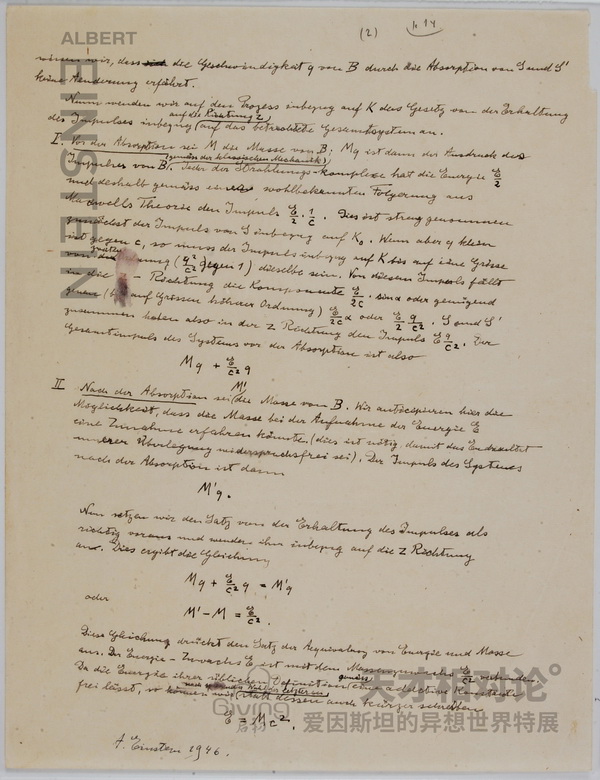 (2)
ALBERT
EINSTEIN
wissen wir, dass die Geschwindigkeit q von B durch die Absorption von S und S'
keine Aenderung erfährt.
Nun wenden wir auf den Prozess inbezug auf K das Gesetz von der Erhaltung
auf die Richtung z
des Impulses inbezug auf das betrachtete Gesamtsystem an.
I. Vor der Absorption sei M die Masse von B; Mq ist dann der Ausdruck des
(gemäss der klassischen Mechanik)
Impulses von B. Jeder der Strahlungs-Komplexe hat die Energie E/2
und deshalb gemäss einer wohlbekannten Folgerung aus
Maxwells Theorie den Impuls E/2 · 1/c. Dies ist streng genommen
zunächst der Impuls von S inbezug auf K₀. Wenn aber q klein
ist gegen c, so muss der Impuls inbezug auf K bis auf eine Grösse
von der (q²/c² gegen 1) dieselbe sein. Von diesem Impuls fällt
in die - Richtung die Komponente E/2c · sin α oder genügend
genau (bis auf Grössen höherer Ordnung) E/2c α oder E/2 q/c². S und S'
zusammen haben also in der z Richtung den Impuls E q/c². Der
Gesamtimpuls des Systems vor der Absorption ist also
Mq + E/c² q
II. Nach der Absorption sei M' die Masse von B. Wir antizipieren hier die
Möglichkeit, dass die Masse bei der Aufnahme der Energie E
eine Zunahme erfahren könnte (dies ist nötig, damit das Endresultat
unserer Überlegung widerspruchsfrei sei). Der Impuls des Systems
nach der Absorption ist dann
M'q.
Nun setzen wir den Satz von der Erhaltung des Impulses als
richtig voraus und wenden ihn inbezug auf die z Richtung
an. Dies ergibt die Gleichung
Mq + E/c² q = M'q
oder
M' - M = E/c².
Diese Gleichung drückt den Satz der Aequivalenz von Energie und Masse
aus. Der Energie-Zuwachs E ist mit dem Massenzuwachs E/c² verbunden.
Da die Energie ihrer üblichen Definition gemäss eine additive Konstante
frei lässt, so können wir statt dessen auch kürzer schreiben
E = Mc².
A. Einstein 1946.
天才相对论°
Giving
爱因斯坦的异想世界特展